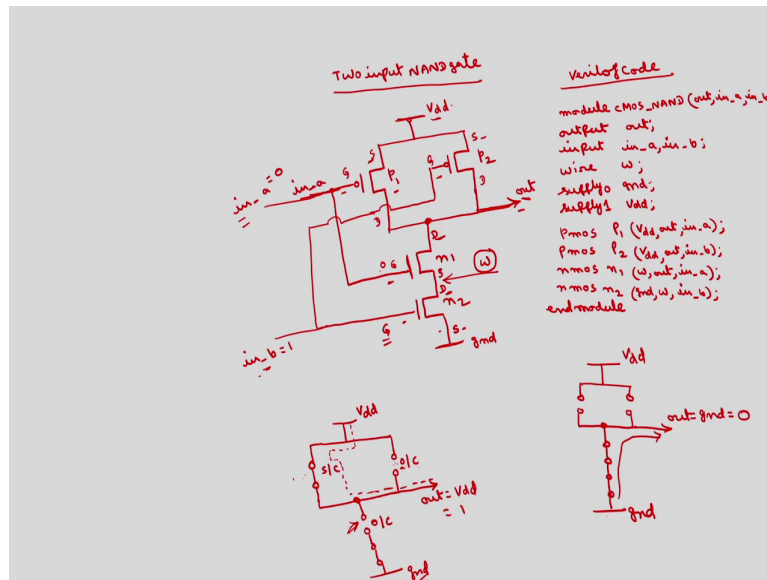 Two input NAND gate
Vdd
S
S
G
P1
G
P2
in_a=0
in_a
D
D
out
D
G
n1
S
w
D
n2
G
S
gnd
in_b=1
Verilog Code
module CMOS_NAND(out,in_a,in_b
output out;
input in_a,in_b;
wire w;
supply0 gnd;
supply1 Vdd;
pmos P1 (Vdd,out,in_a);
pmos P2 (Vdd,out,in_b);
nmos n1 (w,out,in_a);
nmos n2 (gnd,w,in_b);
endmodule
Vdd
S/C
O/C
out=Vdd
= 1
O/C
gnd
Vdd
out=gnd=0
gnd